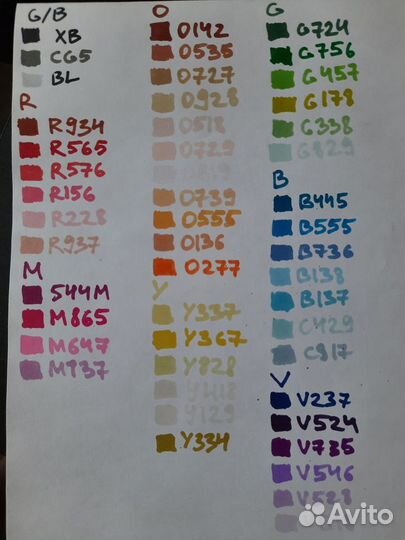 G/B
XB
CG5
BL
R
R934
R565
R576
R156
R228
R937
M
544M
M865
M647
M937
O
O142
O535
O727
O928
O518
O729
O819
O739
O555
O136
O277
Y
Y337
Y367
Y828
Y418
Y129
Y334
G
G724
G756
G457
G178
G338
G829
B
B445
B555
B736
B138
B137
C429
C817
V
V237
V524
V735
V546
V528
Avito